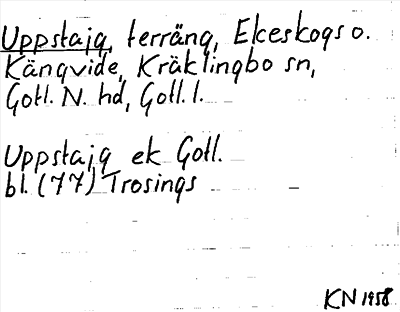 Uppstajg, terräng, Ekeskogs o.
Kängvide, Kräklingbo sn,
Gotl. N. hd, Gotl. l.
Uppstajg ek Gotl.
bl. (77) Trosings
KN 1958